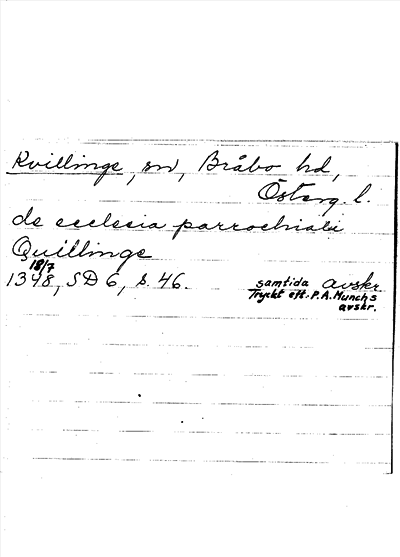 Kvillinge, sn, Bråbo hd,
Österg. l.
de ecclesia parrochiali
Quillinge
18/7
1348, SD 6, s. 46. samtida avskr.
Tryckt eft. P.A. Munchs
avskr.